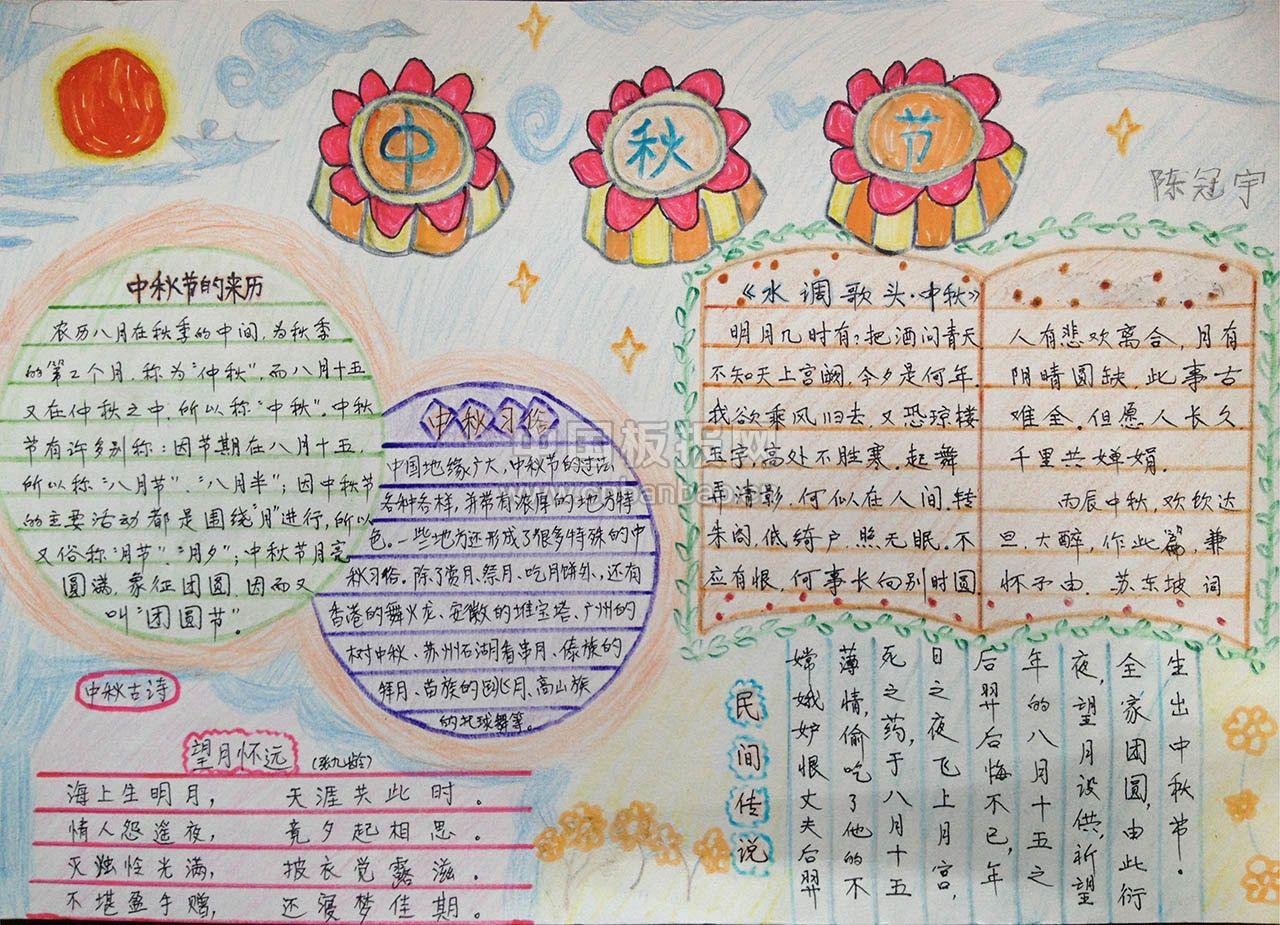 中秋节
陈冠宇
中秋节的来历
农历八月在秋季的中间,为秋季
的第2个月,称为“仲秋”,而八月十五
又在仲秋之中,所以称“中秋”。中秋
节有许多别称:因节期在八月十五,
所以称“八月节”、“八月半”;因中秋节
的主要活动都是围绕“月”进行,所以
又俗称“月节”、“月夕”;中秋节月亮
圆满,象征团圆,因而又
叫“团圆节”。
中秋习俗
中国地缘广大,中秋节的过法
各种各样,并带有浓厚的地方特
色。一些地方还形成了很多特殊的中
秋习俗。除了赏月、祭月、吃月饼外,还有
香港的舞火龙、安徽的堆宝塔、广州的
树中秋、苏州石湖看串月、傣族的
拜月、苗族的跳月、高山族
的托球舞等。
《水调歌头·中秋》
明月几时有?把酒问青天
不知天上宫阙,今夕是何年.
我欲乘风归去,又恐琼楼
玉宇,高处不胜寒,起舞
弄清影,何似在人间.转
朱阁,低绮户,照无眠。不
应有恨,何事长向别时圆
人有悲欢离合,月有
阴晴圆缺,此事古
难全。但愿人长久
千里共婵娟.
丙辰中秋,欢饮达
旦,大醉,作此篇,兼
怀子由. 苏东坡 词
中秋古诗
望月怀远 (张九龄)
海上生明月, 天涯共此时。
情人怨遥夜, 竟夕起相思。
灭烛怜光满, 披衣觉露滋。
不堪盈手赠, 还寝梦佳期。
民间传说
嫦娥妒恨丈夫后羿
薄情,偷吃了他的不
死之药,于八月十五
日之夜飞上月宫,
后羿后悔不已,年
年的八月十五之
夜,望月设供,祈望
全家团圆,由此衍
生出中秋节。
中国板报网